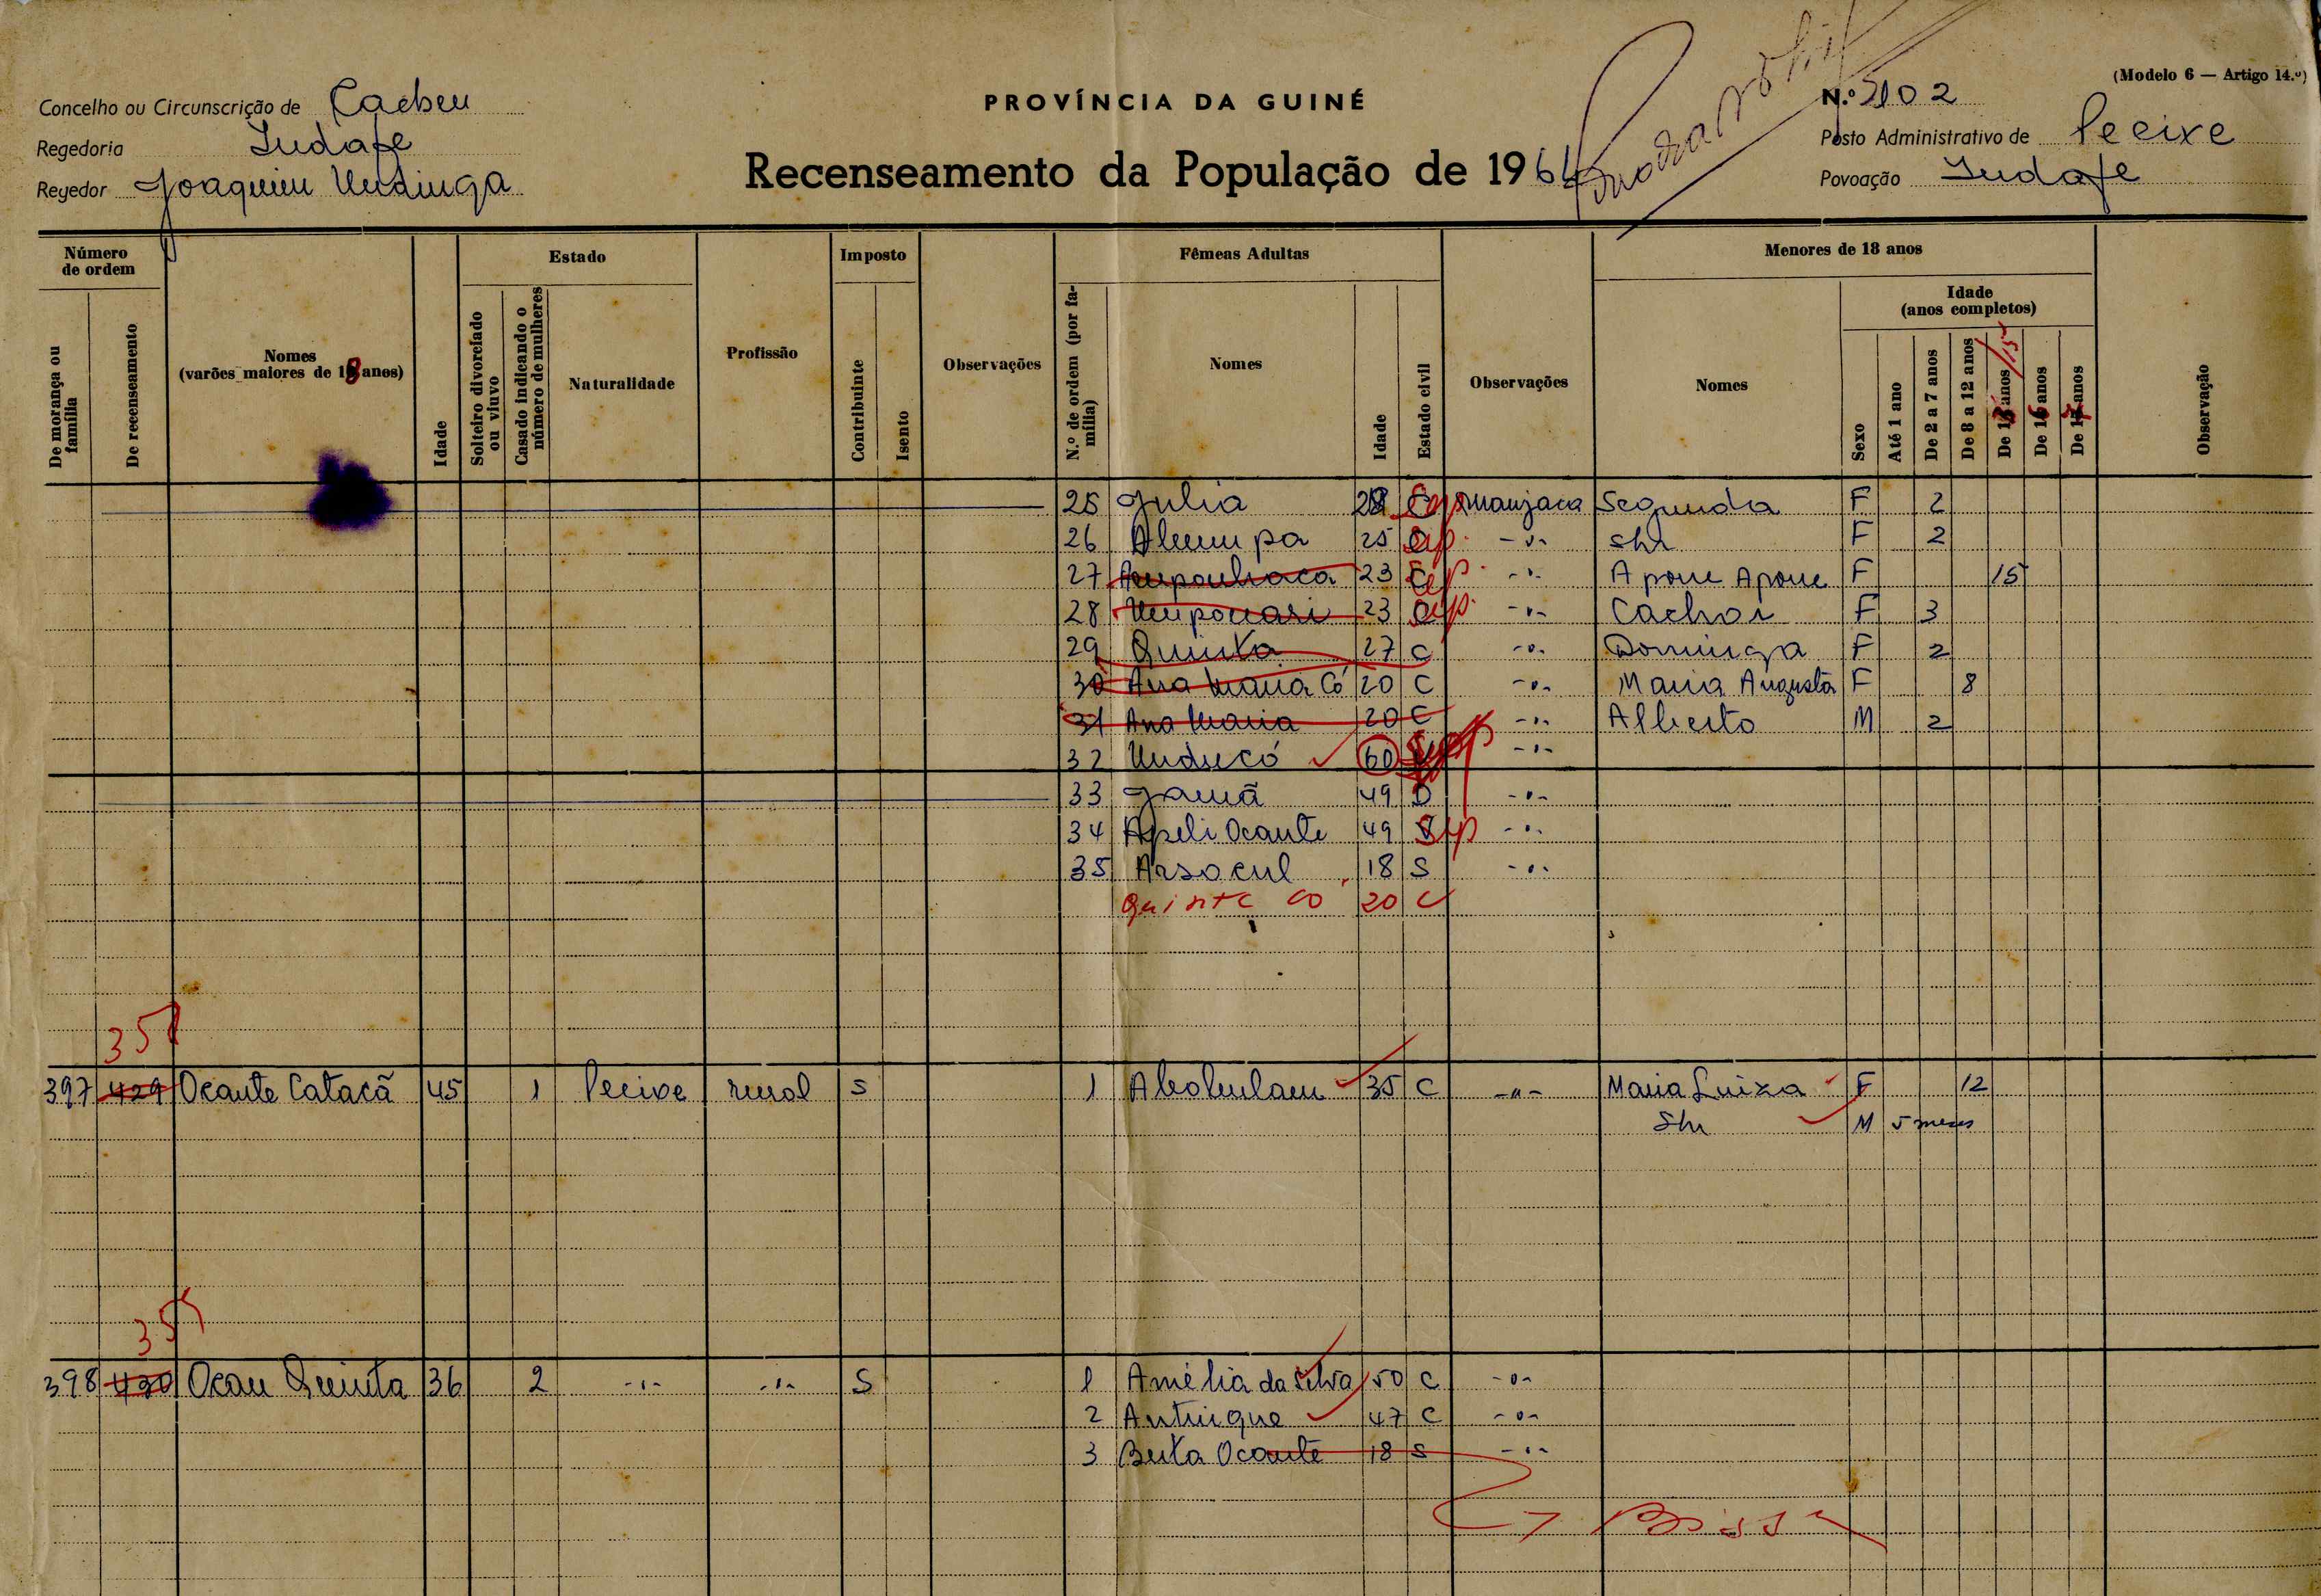 (Modelo 6 — Artigo 14.º)
Concelho ou Circunscrição de Cacheu
PROVÍNCIA DA GUINÉ
N.º 102
Regedoria Indafe
Posto Administrativo de Pecixe
Regedor Joaquim Undinga
Recenseamento da População de 196
Povoação Indafe
Número de ordem
De morança ou família
De recenseamento
Nomes
(varões maiores de 18 anos)
Idade
Estado
Solteiro divorciado ou viuvo
Casado indicando o número de mulheres
Naturalidade
Profissão
Imposto
Contribuinte
Isento
Observações
Fêmeas Adultas
N.º de ordem (por família)
Nomes
Idade
Estado civil
Observações
Menores de 18 anos
Nomes
Sexo
Idade
(anos completos)
Até 1 ano
De 2 a 7 anos
De 8 a 12 anos
De 13 anos /15
De 16 anos
De 17 anos
Observação
25 Julia manjaca Segunda F 2
26 Alumpa 25 -"- S/n F 2
27 23 -"- Apone Apone F 15
28 Umpocasi 23 -"- Cachoi F 3
29 Quinta 27 C -"- Dominga F 2
30 Ana Maria Có 20 C -"- Maria Augusta F 8
31 Ana Maria 20 C -"- Alberto M 2
32 Unducó 60 -"-
33 Jamã 49 D -"-
34 Apeli Ocante 49 -"-
35 Arsocul 18 S -"-
Quinta Co 20 C
358
397 429 Ocante Catacã 45 1 Pecixe rural S 1 35 C -"- Maria Luiza F 12
S/n M 5 meses
359
398 430 Ocau Quinta 36 2 -"- -"- S 1 Amélia da Silva 50 C -"-
2 Antuique 47 C -"-
3 Beita Ocante 18 S -"-
Bissau